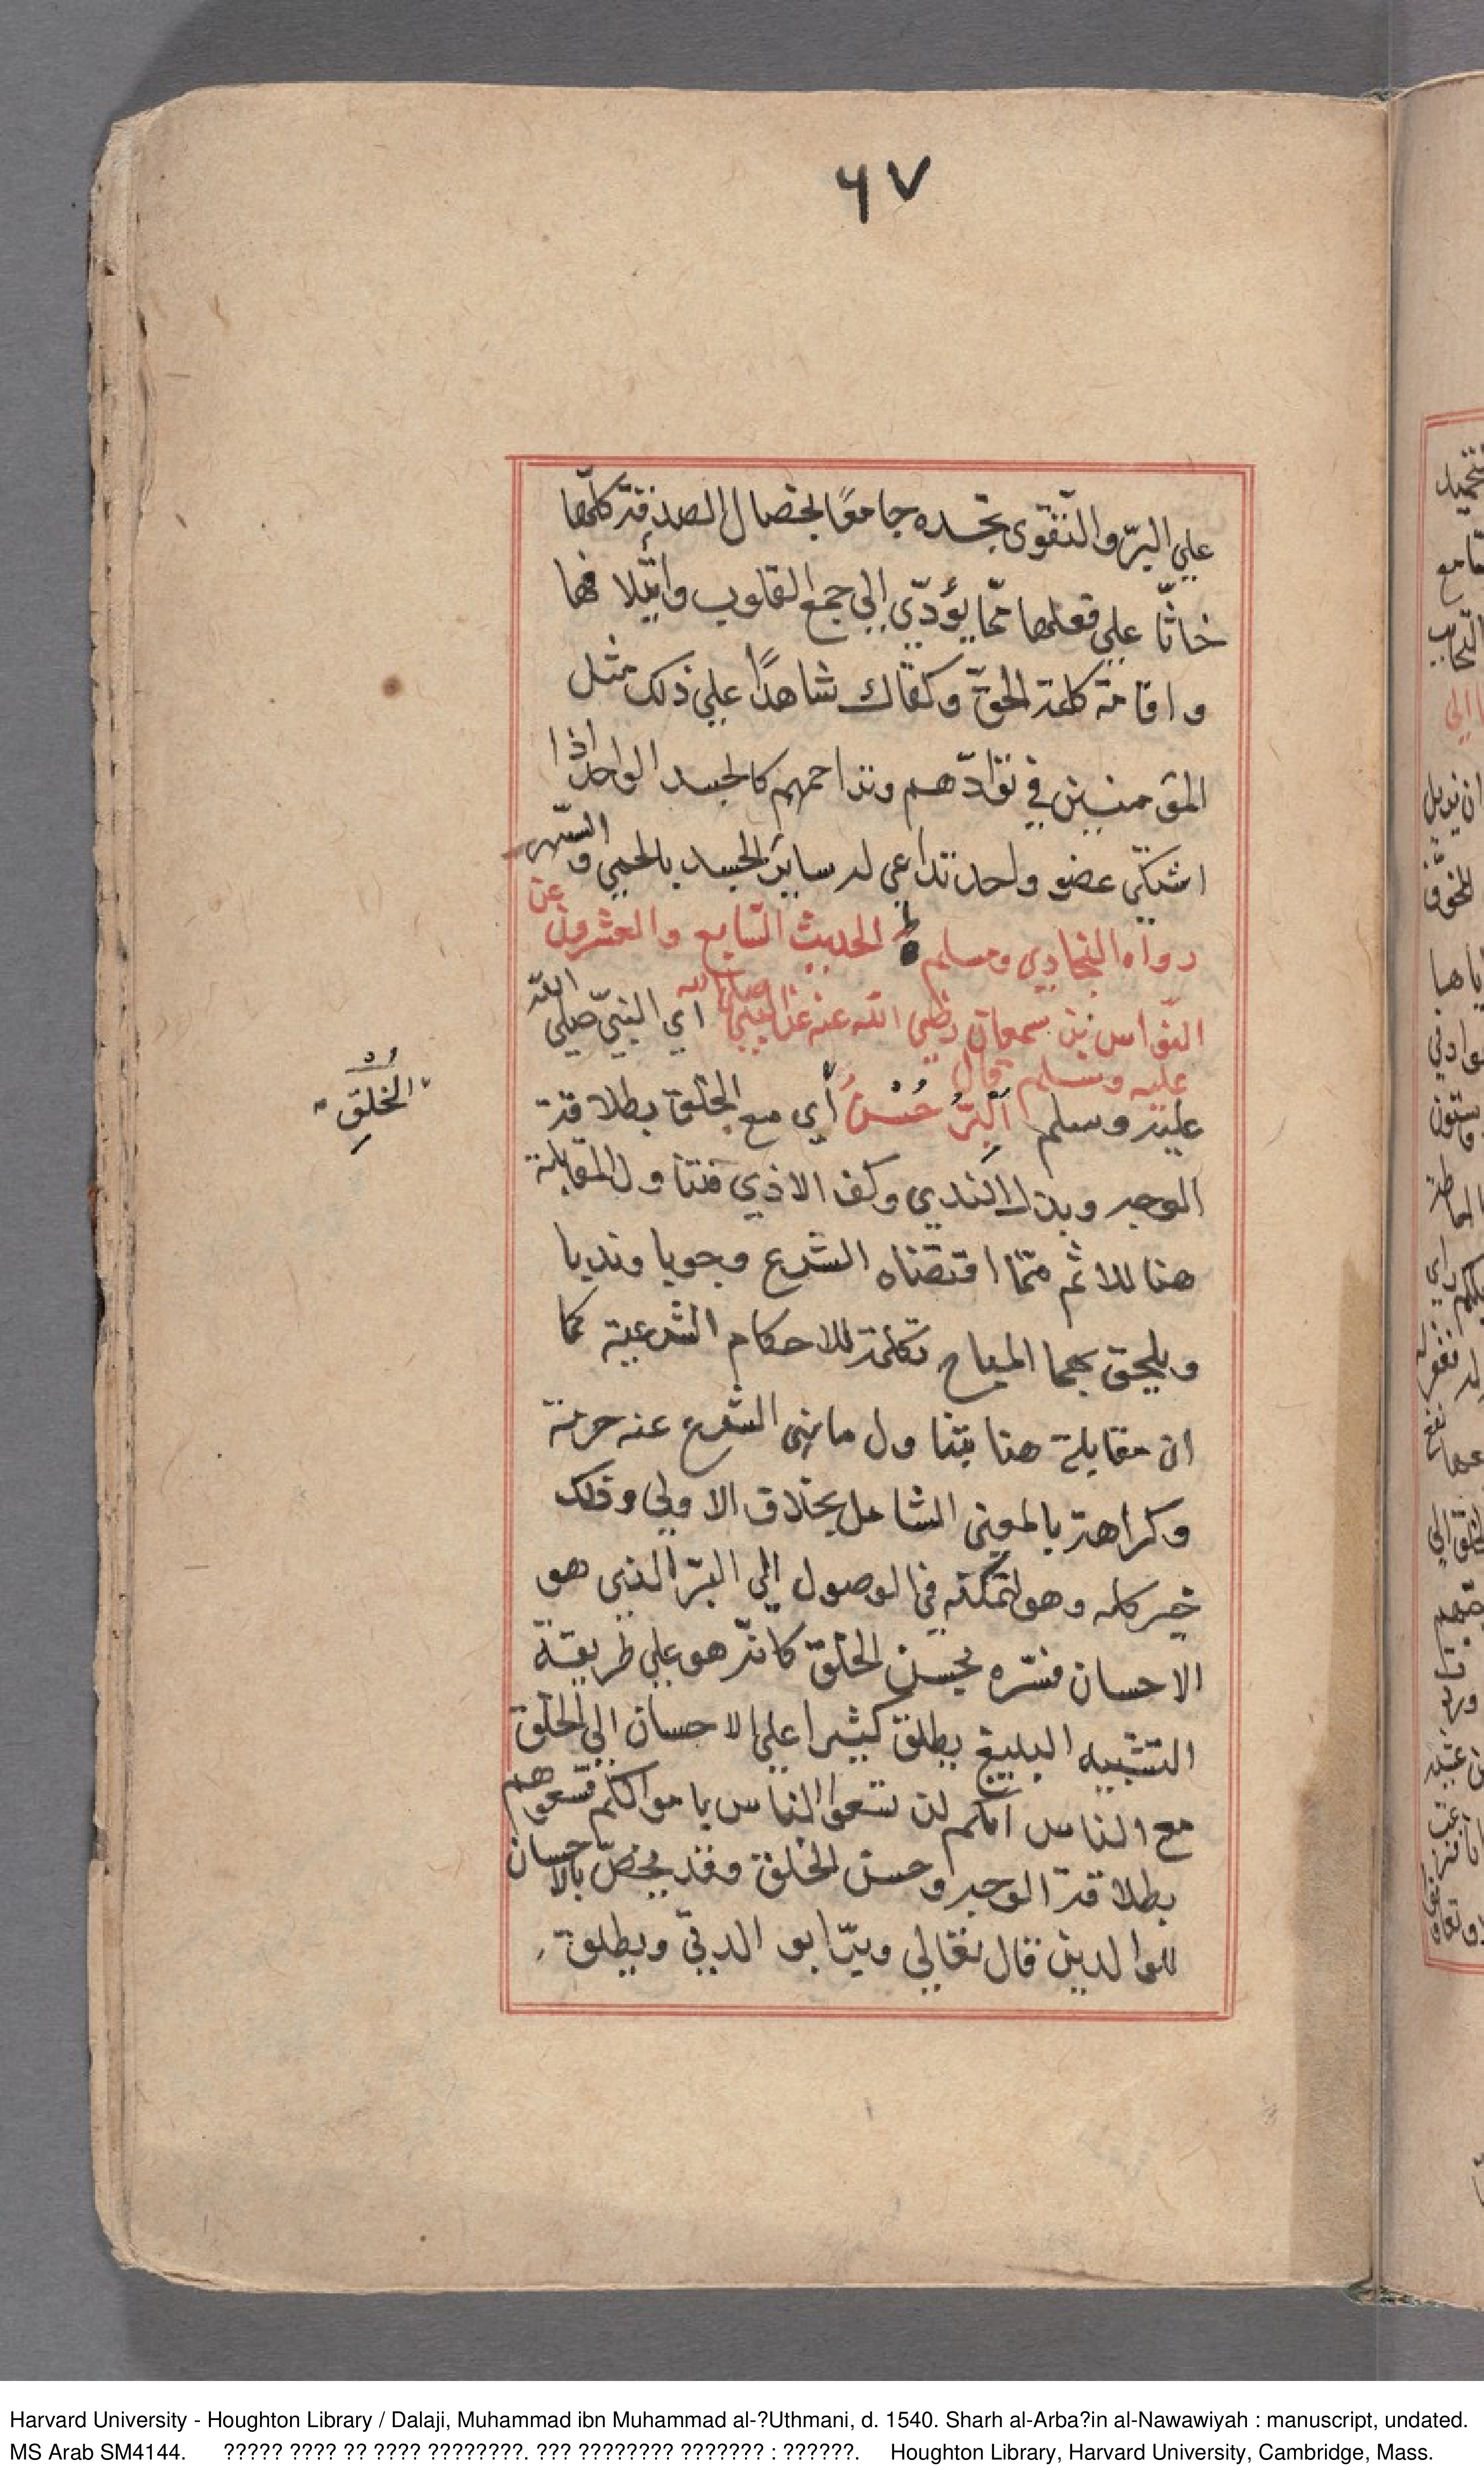 ٦٧
علي البرّ والتّقوى تجده جامعًا لخصال الصدقة كلّها
حاثّا علي فعلها ممّا يؤدّي إلي جمع القلوب وائتلافها
واقامة كلمة الحقّ وكفاك شاهدًا علي ذلك مثل
المؤمنين في توادّهم وتراحمهم كالجسد الواحد اذا
اشتكي عضو واحد تداعي له ساير الجسد بالحمي والسّهر
رواه البخاري ومسلم الحديث السّابع والعشرون عن
النّواس بن سمعان رضي الله عنه عن النبي صلي الله اي النبيّ صلي الله
عليه وسلم قال
عليه وسلم اَلْبِرُّ حُسْنُ أي مع الخلق بطلاقة
الخُلُقِ
الوجه وبذل الندي وكف الاذي فتناول المقابلة
هنا للاثم ممّا اقتضاه الشرع وجوبا وندبا
ويلحق بهما المباح تكلمة للاحكام الشرعية كما
ان مقابلة هنا يتناول ما نهى الشرع عنه حرمة
وكراهة بالمعني الشامل بخلاف الاولي وذلك
خير كله وهو لتمكنه في الوصول إلي البرّ الذي هو
الاحسان فسّره بحسن الخلق كانّه هو علي طريقة
التشبيه البليغ يطلق كثيرا علي الاحسان إلي الخلق
مع الناس انكم لن تسعوا الناس باموالكم فسعوهم
بطلاقة الوجه وحسن الخلق وقد يخصّ بالاحسان
للوالدين قال تعالي وبرّا بوالدتي ويطلق